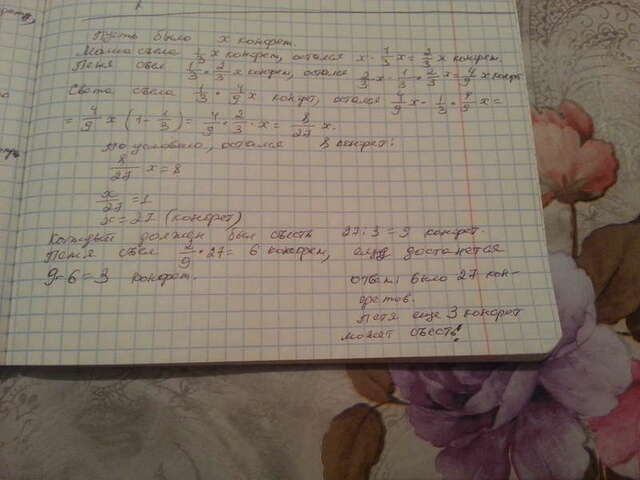 Пусть было x конфет.
Маша съела 1/3 x конфет, остался x - 1/3 x = 2/3 x конфет.
Петя съел 1/3 * 2/3 x конфет, остался 2/3 x - 1/3 * 2/3 x = 4/9 x конфет
Света съела 1/3 * 4/9 x конфет, остался 4/9 x - 1/3 * 4/9 x =
= 4/9 x (1 - 1/3) = 4/9 * 2/3 * x = 8/27 x.
По условию, остался 8 конфет:
8/27 x = 8
x/27 = 1
x = 27 (конфет)
Каждый должен был съесть 27 : 3 = 9 конфет.
Петя съел 2/9 * 27 = 6 конфет, ему достанется
9 - 6 = 3 конфет.
Ответ: было 27 кон-
фетов.
Петя еще 3 конфет
может съесть!